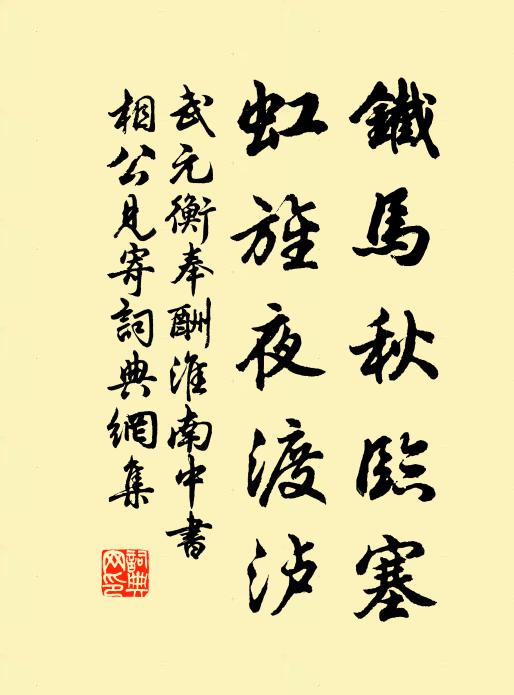 鐵馬秋臨塞
虹旌夜渡泸
武元衡奉酬淮南中書
相公見寄詞典網集
詞典網印